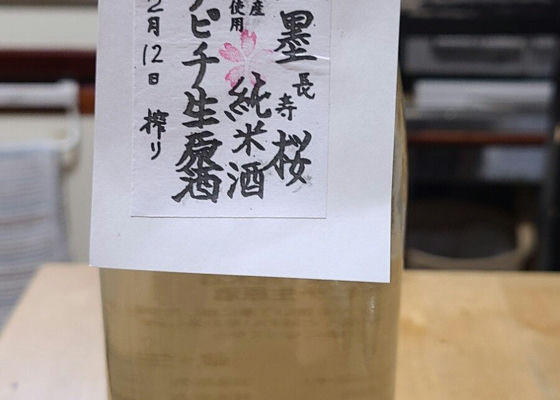 墨
長寿
桜
産
使用
純米酒
ピチ生原酒
2月12日 搾り